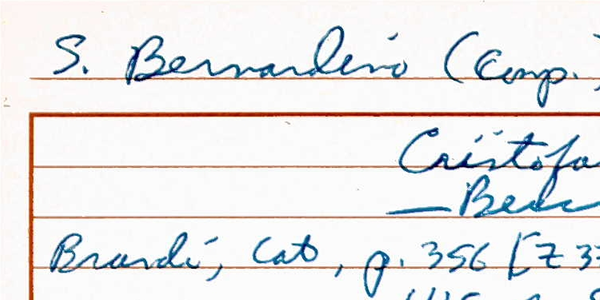 S. Bernardino (Comp.)
Cristofa
— Becc
Brandi, Cat, p. 356 [Z 33